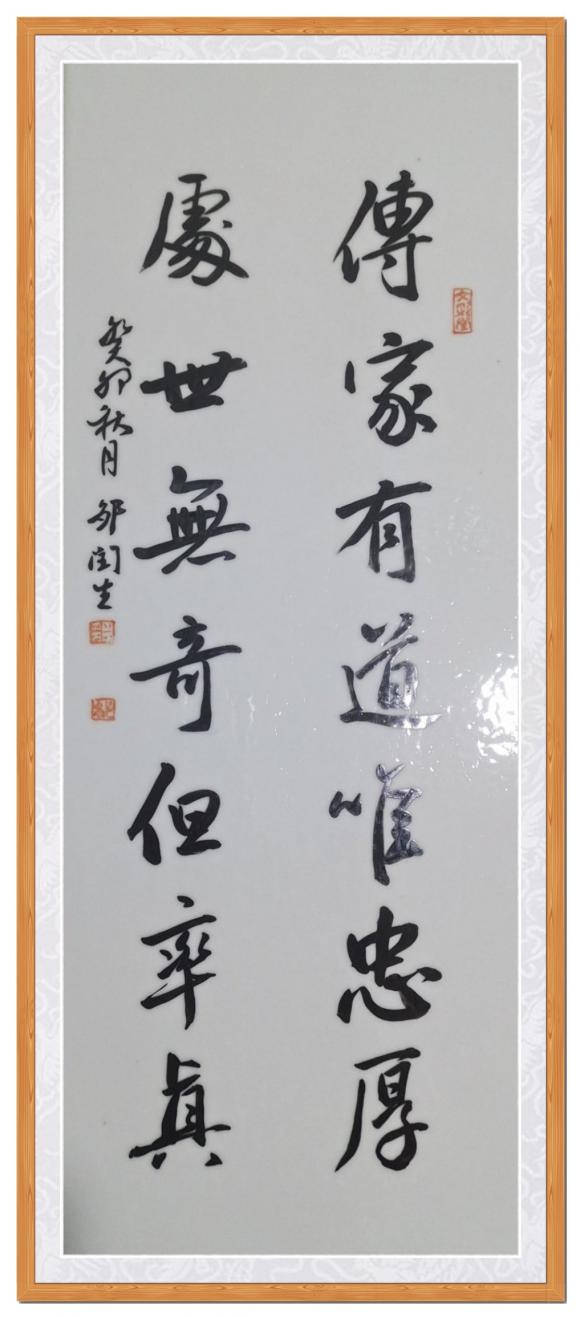 傳家有道唯忠厚
處世無奇但率真
癸卯秋月 邹闰生